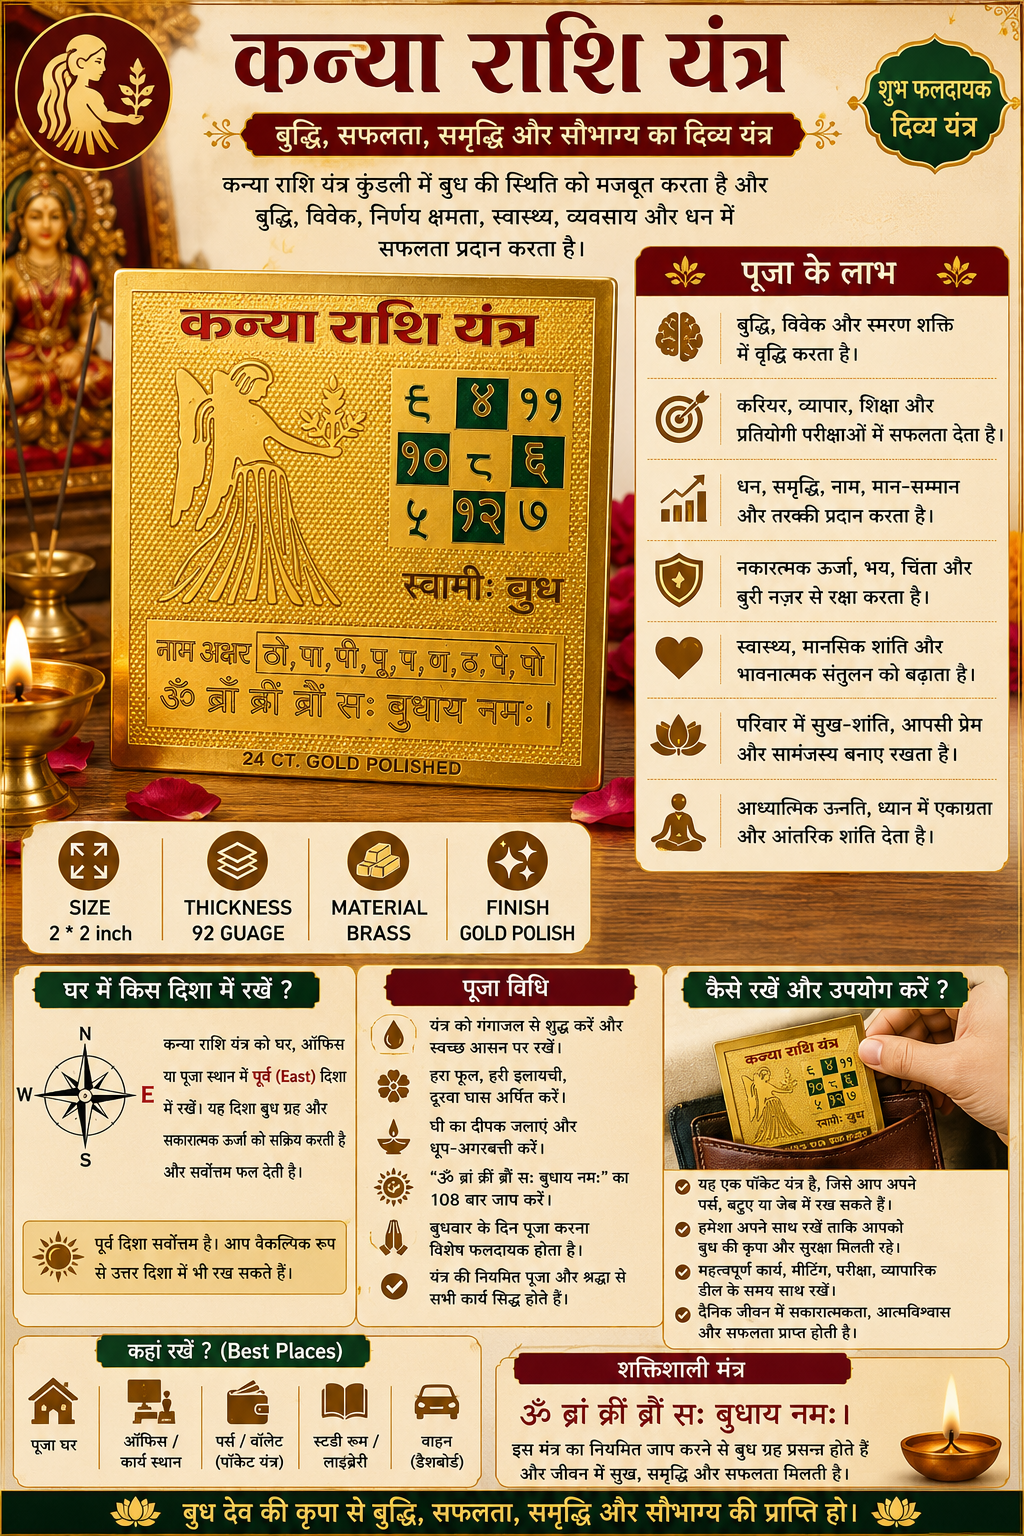 कन्या राशि यंत्र
शुभ फलदायक
दिव्य यंत्र
बुद्धि, सफलता, समृद्धि और सौभाग्य का दिव्य यंत्र
कन्या राशि यंत्र कुंडली में बुध की स्थिति को मजबूत करता है और
बुद्धि, विवेक, निर्णय क्षमता, स्वास्थ्य, व्यवसाय और धन में
सफलता प्रदान करता है।
कन्या राशि यंत्र
९ ४ ११
१० ८ ६
५ १२ ७
स्वामीः बुध
नाम अक्षर ठो, पा, पी, पू, प, ण, ठ, पे, पो
ॐ ब्राँ ब्रीं ब्रौं सः बुधाय नमः।
24 CT. GOLD POLISHED
पूजा के लाभ
बुद्धि, विवेक और स्मरण शक्ति
में वृद्धि करता है।
करियर, व्यापार, शिक्षा और
प्रतियोगी परीक्षाओं में सफलता देता है।
धन, समृद्धि, नाम, मान-सम्मान
और तरक्की प्रदान करता है।
नकारत्मक ऊर्जा, भय, चिंता और
बुरी नज़र से रक्षा करता है।
स्वास्थ्य, मानसिक शांति और
भावनात्मक संतुलन को बढ़ाता है।
परिवार में सुख-शांति, आपसी प्रेम
और सामंजस्य बनाए रखता है।
आध्यात्मिक उन्नति, ध्यान में एकाग्रता
और आंतरिक शांति देता है।
SIZE
2 * 2 inch
THICKNESS
92 GUAGE
MATERIAL
BRASS
FINISH
GOLD POLISH
घर में किस दिशा में रखें ?
N
W
E
S
कन्या राशि यंत्र को घर, ऑफिस
या पूजा स्थान में पूर्व (East) दिशा
में रखें। यह दिशा बुध ग्रह और
सकारात्मक ऊर्जा को सक्रिय करती है
और सर्वोत्तम फल देती है।
पूर्व दिशा सर्वोत्तम है। आप वैकल्पिक रूप
से उत्तर दिशा में भी रख सकते हैं।
पूजा विधि
यंत्र को गंगाजल से शुद्ध करें और
स्वच्छ आसन पर रखें।
हरा फूल, हरी इलायची,
दूरवा घास अर्पित करें।
घी का दीपक जलाएं और
धूप-अगरबत्ती करें।
"ॐ ब्रां क्रीं ब्रौं सः बुधाय नमः" का
108 बार जाप करें।
बुधवार के दिन पूजा करना
विशेष फलदायक होता है।
यंत्र की नियमित पूजा और श्रद्धा से
सभी कार्य सिद्ध होते हैं।
कैसे रखें और उपयोग करें ?
कन्या राशि यंत्र
९ ४ ११
१० ८ ६
५ १२ ७
स्वामीः बुध
यह एक पॉकेट यंत्र है, जिसे आप अपने
पर्स, बटुए या जेब में रख सकते हैं।
हमेशा अपने साथ रखें ताकि आपको
बुध की कृपा और सुरक्षा मिलती रहे।
महत्वपूर्ण कार्य, मीटिंग, परीक्षा, व्यापारिक
डील के समय साथ रखें।
दैनिक जीवन में सकारात्मकता, आत्मविश्वास
और सफलता प्राप्त होती है।
कहां रखें ? (Best Places)
पूजा घर
ऑफिस /
कार्य स्थान
पर्स / वॉलेट
(पॉकेट यंत्र)
स्टडी रूम /
लाइब्रेरी
वाहन
(डैशबोर्ड)
शक्तिशाली मंत्र
ॐ ब्रां क्रीं ब्रौं सः बुधाय नमः।
इस मंत्र का नियमित जाप करने से बुध ग्रह प्रसन्न होते हैं
और जीवन में सुख, समृद्धि और सफलता मिलती है।
बुध देव की कृपा से बुद्धि, सफलता, समृद्धि और सौभाग्य की प्राप्ति हो।